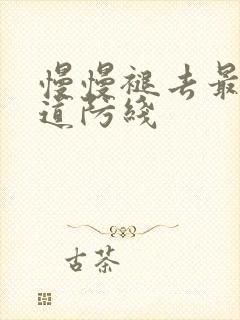 慢慢褪去最
道防线
古茶